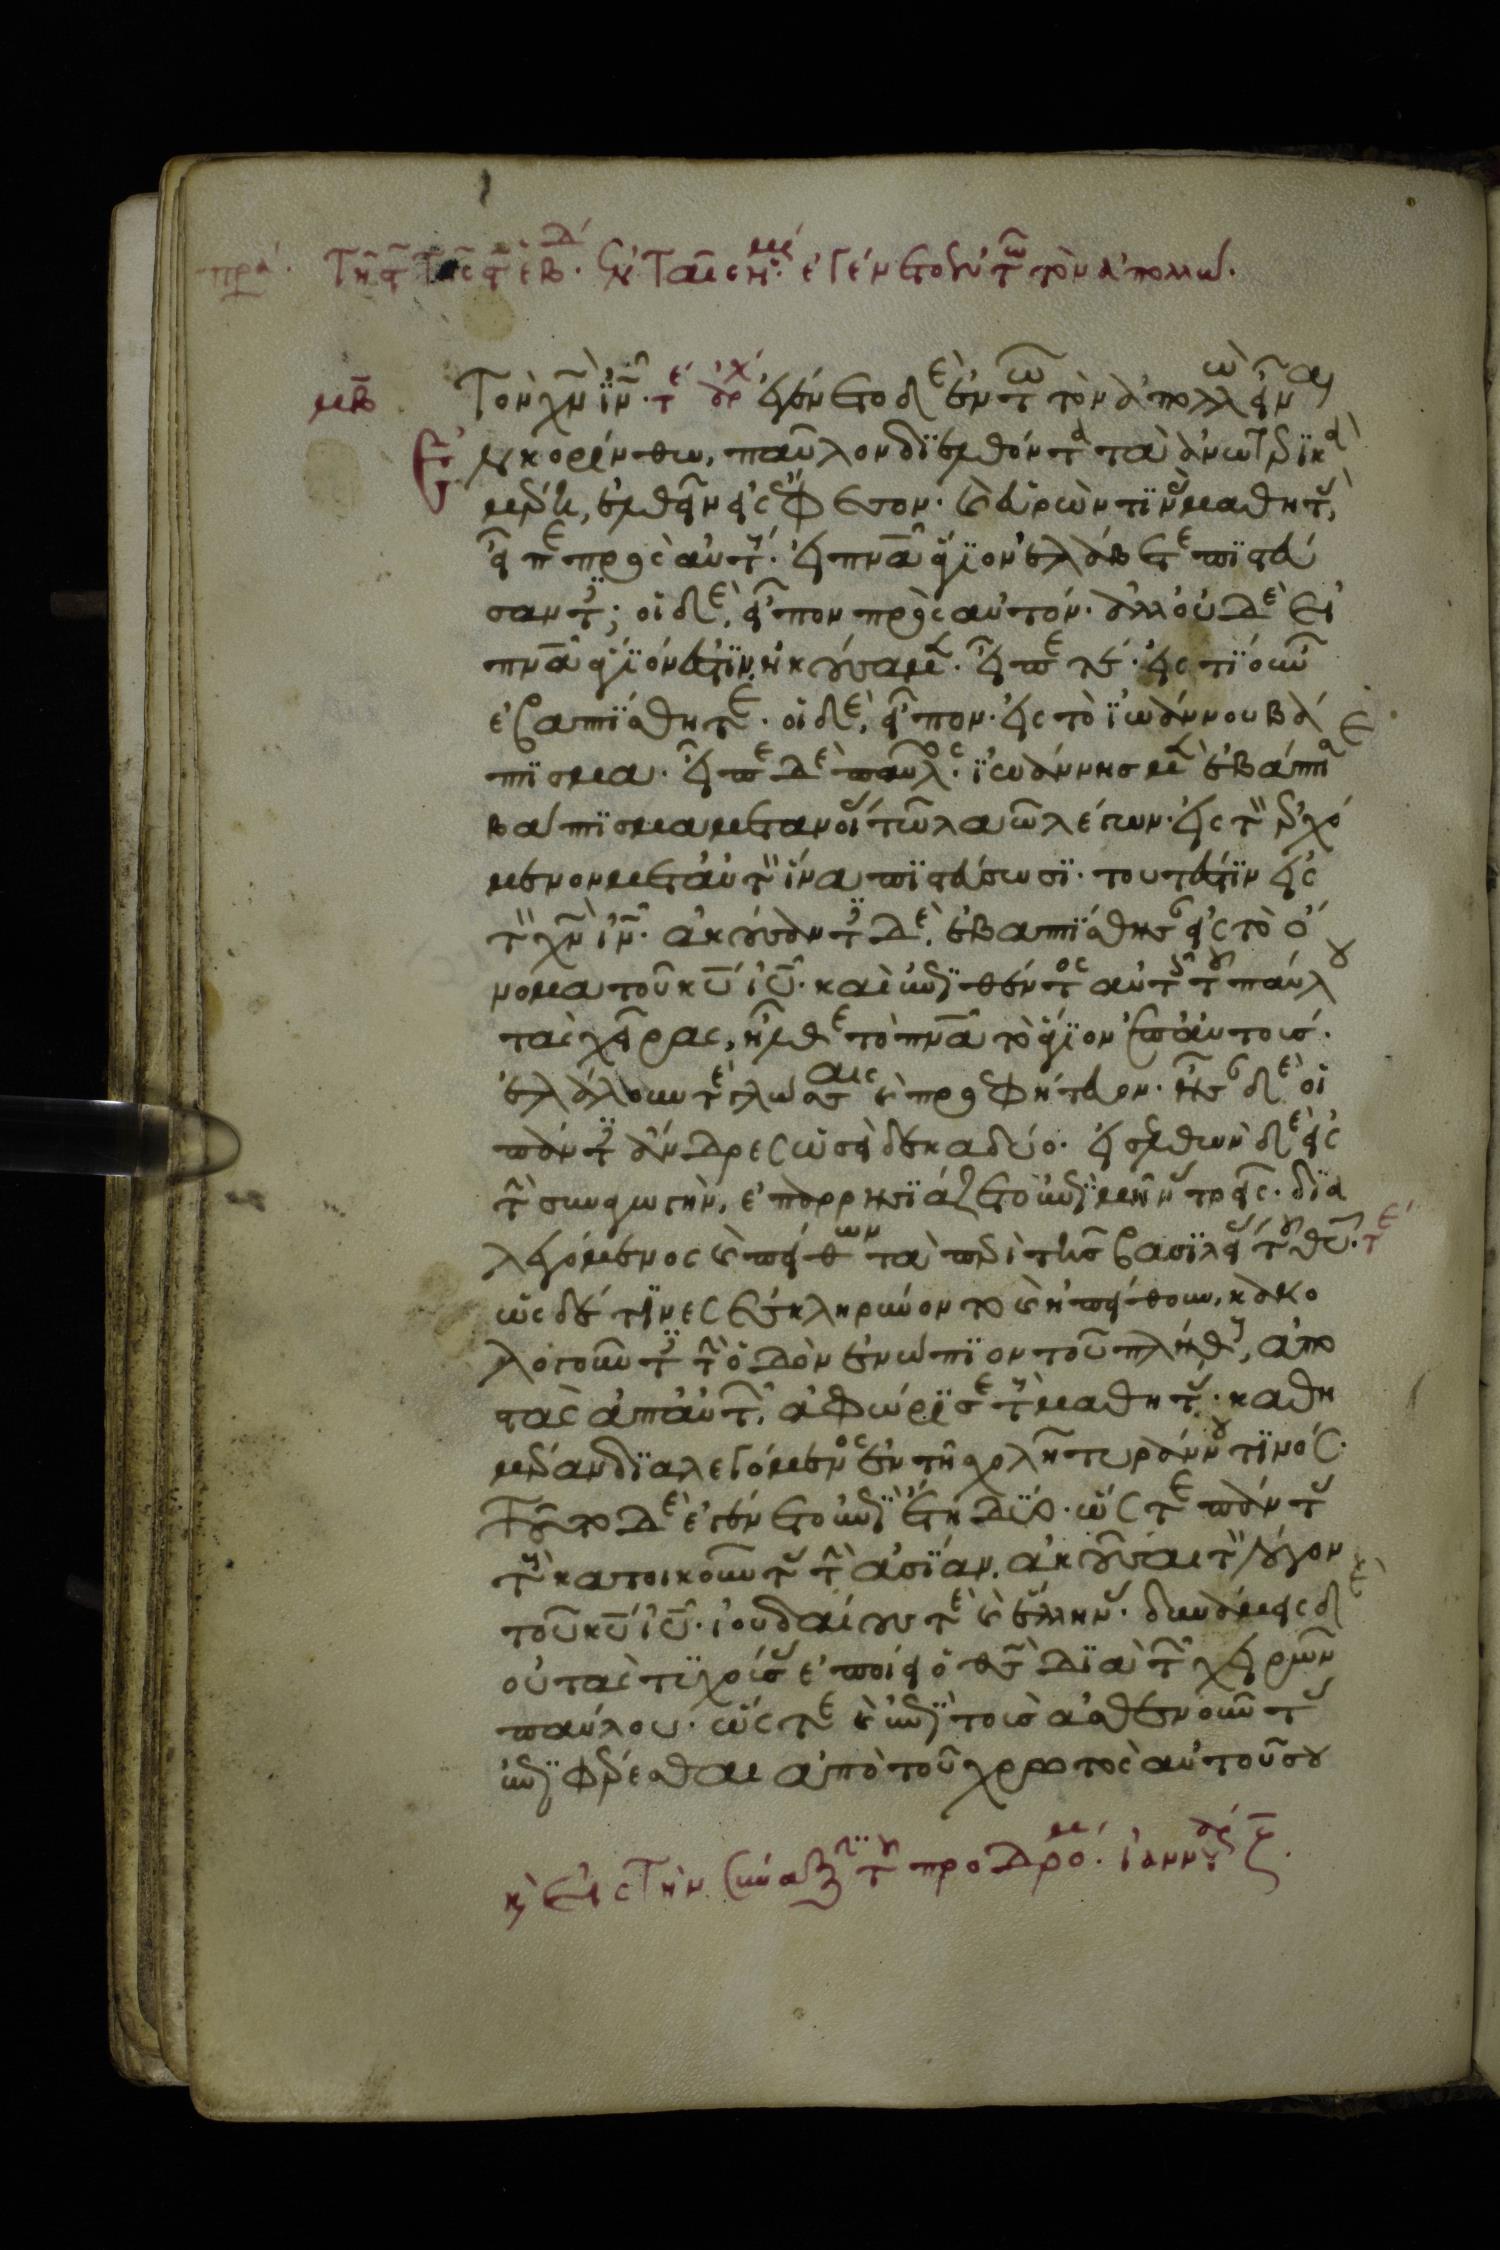 πρά. Τῇ ϛ τῆς ϛ ἑβδ. ἐν ταῖς ἡμέ. ἐγένετο ἐν τῶ τὸν ἀπολλώ.
μβ Τὸν χν ἰν· τέ ἀρχ ἐγένετο δὲ ἐν τῶ τὸν ἀπολλὼ εἶναι
ἐν κορίνθω, παῦλον διελθόντα τὰ ἀνωτερικὰ
μέρη, ἐλθεῖν εἰς ἔφεσον· καὶ εὑρὼν τινὰς μαθητὰς,
εἶπε πρὸς αὐτούς· εἰ πνα ἅγιον ἐλάβετε πιστεύ
σαντες; οἱ δὲ, εἶπον πρὸς αὐτόν· ἀλλ' οὐδὲ εἰ
πνα ἅγιόν ἐστιν ἠκούσαμεν· εἶπέ τε· εἰς τί οὖν
ἐβαπτίσθητε· οἱ δὲ, εἶπον· εἰς τὸ ἰωάννου βά
πτισμα· εἶπε δὲ παῦλος· ἰωάννης μὲν ἐβάπτισε
βάπτισμα μετανοίας τῶ λαῶ λέγων· εἰς τὸν ἐρχό
μενον μετ' αὐτὸν ἵνα πιστεύσωσι· τουτέστιν εἰς
τὸν χν ἰν· ἀκούσαντες δὲ, ἐβαπτίσθησαν εἰς τὸ ὄ
νομα τοῦ κυ ἰυ· καὶ ἐπιθέντος αὐτοῖς τοῦ παύλου
τὰς χεῖρας, ἦλθε τὸ πνα τὸ ἅγιον ἐπ' αὐτοῖς·
ἐλάλουν τε γλώσσαις καὶ προεφήτευον· ἦσαν δὲ οἱ
πάντες ἄνδρες ὡσεὶ δεκαδύο· εἰσελθὼν δὲ εἰς
τὴν συναγωγὴν, ἐπαρρησιάζετο ἐπὶ μῆνας τρεῖς· δια
λεγόμενος καὶ πείθων τὰ περὶ τῆς βασιλείας τοῦ θυ· τέ
ὡς δέ τινες ἐσκληρύνοντο καὶ ἠπείθουν, κακο
λογοῦντες τὴν ὁδὸν ἐνώπιον τοῦ πλήθους, ἀπο
στὰς ἀπ' αὐτῶν, ἀφώρισε τοὺς μαθητάς· καθη
μέραν διαλεγόμενος ἐν τῆ σχολῆ τυράννου τινός·
Τοῦτο δὲ ἐγένετο ἐπὶ ἔτη δύο· ὥς τε πάντας
τοὺς κατοικοῦντας τὴν ἀσίαν, ἀκοῦσαι τὸν λόγον
τοῦ κυ ἰυ· ἰουδαίους τὲ καὶ ἕλληνας· δυνάμεις δὲ
οὐ τὰς τυχούσας ἐποίει ὁ θς διὰ τῶν χειρῶν
παύλου· ὥς τε καὶ ἐπὶ τοὺς ἀσθενοῦντας
ἐπιφέρεσθαι ἀπὸ τοῦ χρωτὸς αὐτοῦ σου
καὶ εἰς τὴν σύναξιν τοῦ προδρόμ. ἰαννουάρ ζ.